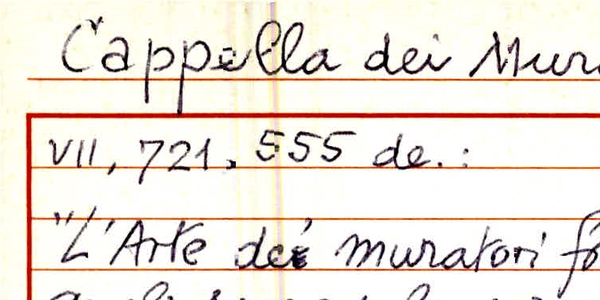 Cappella dei Mur
VII, 721, 555 de.:
"L'Arte dei muratori fo